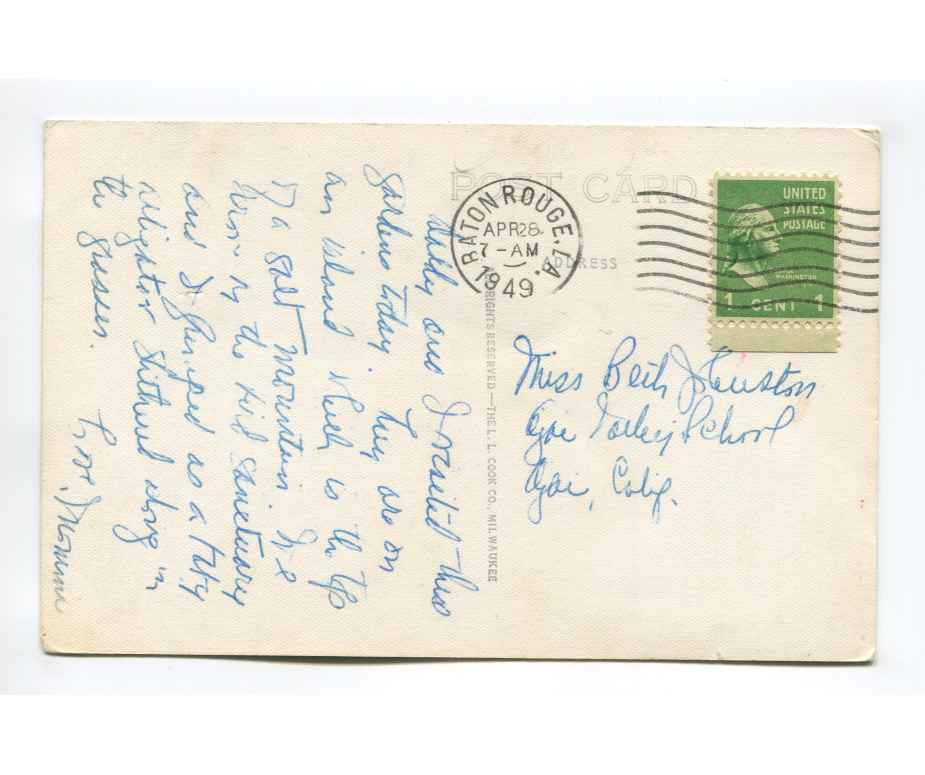 POST CARD
ADDRESS
BATON ROUGE, LA.
APR 28
7 - AM
1949
UNITED
STATES
POSTAGE
WASHINGTON
1 CENT 1
RIGHTS RESERVED — THE L. L. COOK CO., MILWAUKEE
Miss Beth Houston
Ojai Valley School
Ojai, Calif.
and I visited this
gardens today. They are on
an island which is the top
of a salt mountain. We
by the bird sanctuary
and I as a
alligator slithered along in
the grasses.
Love,